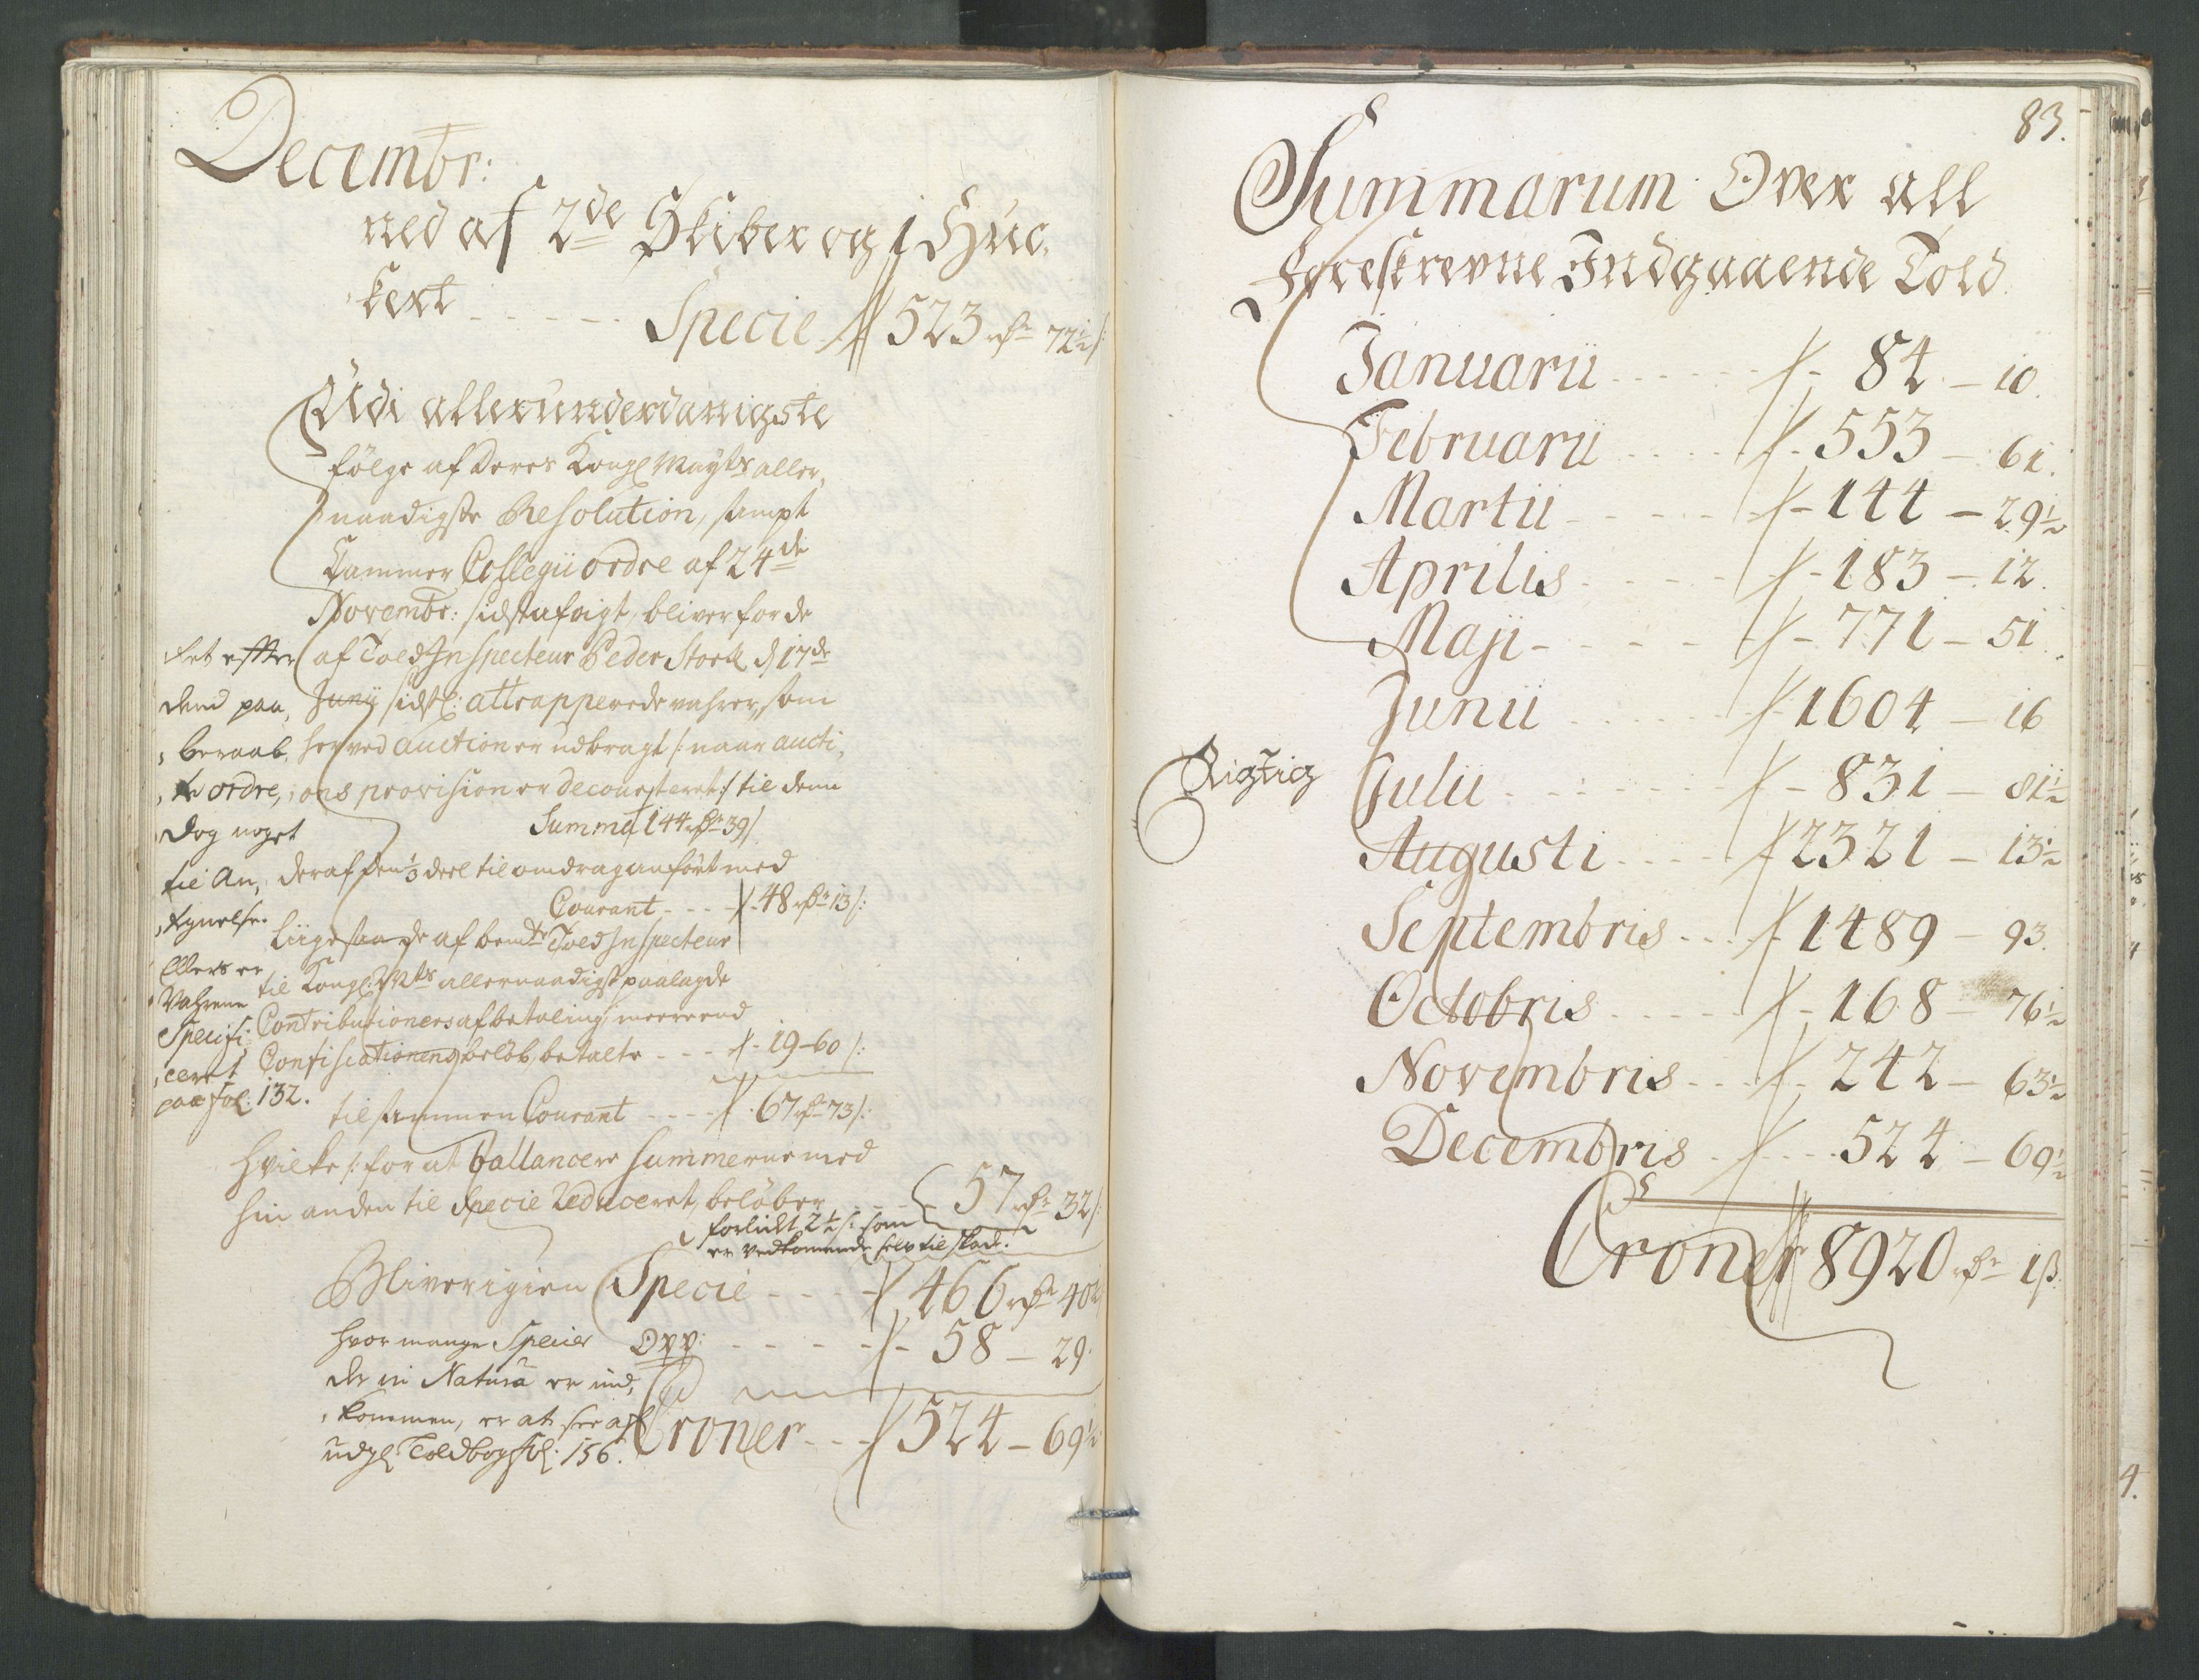 Decembr:
ned af 2de Skiber og 1 Huc,
kert - - - - - Specie 523 rdr 72½ s:
Udi allerunderdanigste
følge af Deres Kongl Mayts aller,
naadigste Resolution, sampt
Cammer Collegii ordre af 24de
Novembr: sidst afvigt, bliver for de
af Told Inspecteur Peder Stork d 17de
Junij sidstl: attrapperede vahrer, som
her ved auction er udbragt /: naar aucti,
ons provision er decourteret :/ til denn
Summa 144 rdr 39 s
deraf den ⅓ deel til omdrag anført med
Courant - - - 48 rdr 13 s:
Liigesaa de af bemte Told Inspecteur
til Kongl: Mts allernaadigst paalagde
Contributioners afbetaling meerered
Confiscationens beløb, betalte - - - 19 - 60 s:
tilsammen Courant - - - - 67 rdr 73 s:
hvilke /: for at ballancere Summerne med
hin anden til Specie reduceret, beløber - - - 57 rdr 32 s:
forlidt 2½ s: som
er vedkommende selv til skade.
Bliver igien Specie - - - - 466 rdr 40½
Opp: - - - - - 58 - 29.
Croner - - - 524 - 69½
Det efter
dend paa,
beraab,
te ordre,
dog noget
til An,
tegnelse.
Ellers er
Vahrene
Specifi:
ceret
paa fol: 132.
hvor mange Specier
der in Natura er ind,
kommen, er at see af
udgl Toldbog fol: 156.
83.
Summarum Over all
Foreskrevne Indgaaende Told
Januarii - - - - - - 84 - 10.
Februarii - - - - - 553 - 61.
Martii - - - - - - 144 - 29½
Aprilis - - - - - 183 - 12.
Maji - - - - - - 771 - 51.
Junii - - - - - - 1604 - 16
Rigtig
Julii - - - - - - - 831 - 81½
Augusti - - - - - 2321 - 13½
Septembris - - - - 1489 - 93.
Octobris - - - - - 168 - 76½
Novembris - - - - 242 - 63½
Decembris - - - - 524 - 69½
Croner 8920 rdr 1 s.